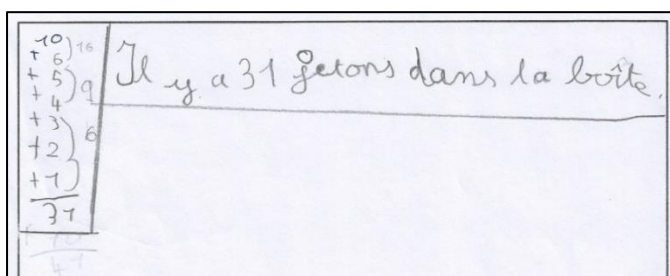 10
+ 6 ) 16
+ 5
+ 4 ) 9
+ 3
+ 2 ) 6
+ 1
31
+ 10
41
Il y a 31 jetons dans la boîte.